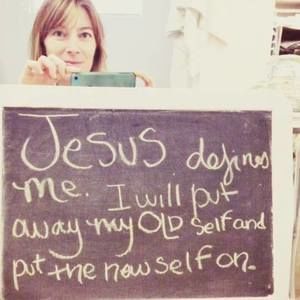 Jesus defines
me. I will put
away my OLD self and
put the new self on.